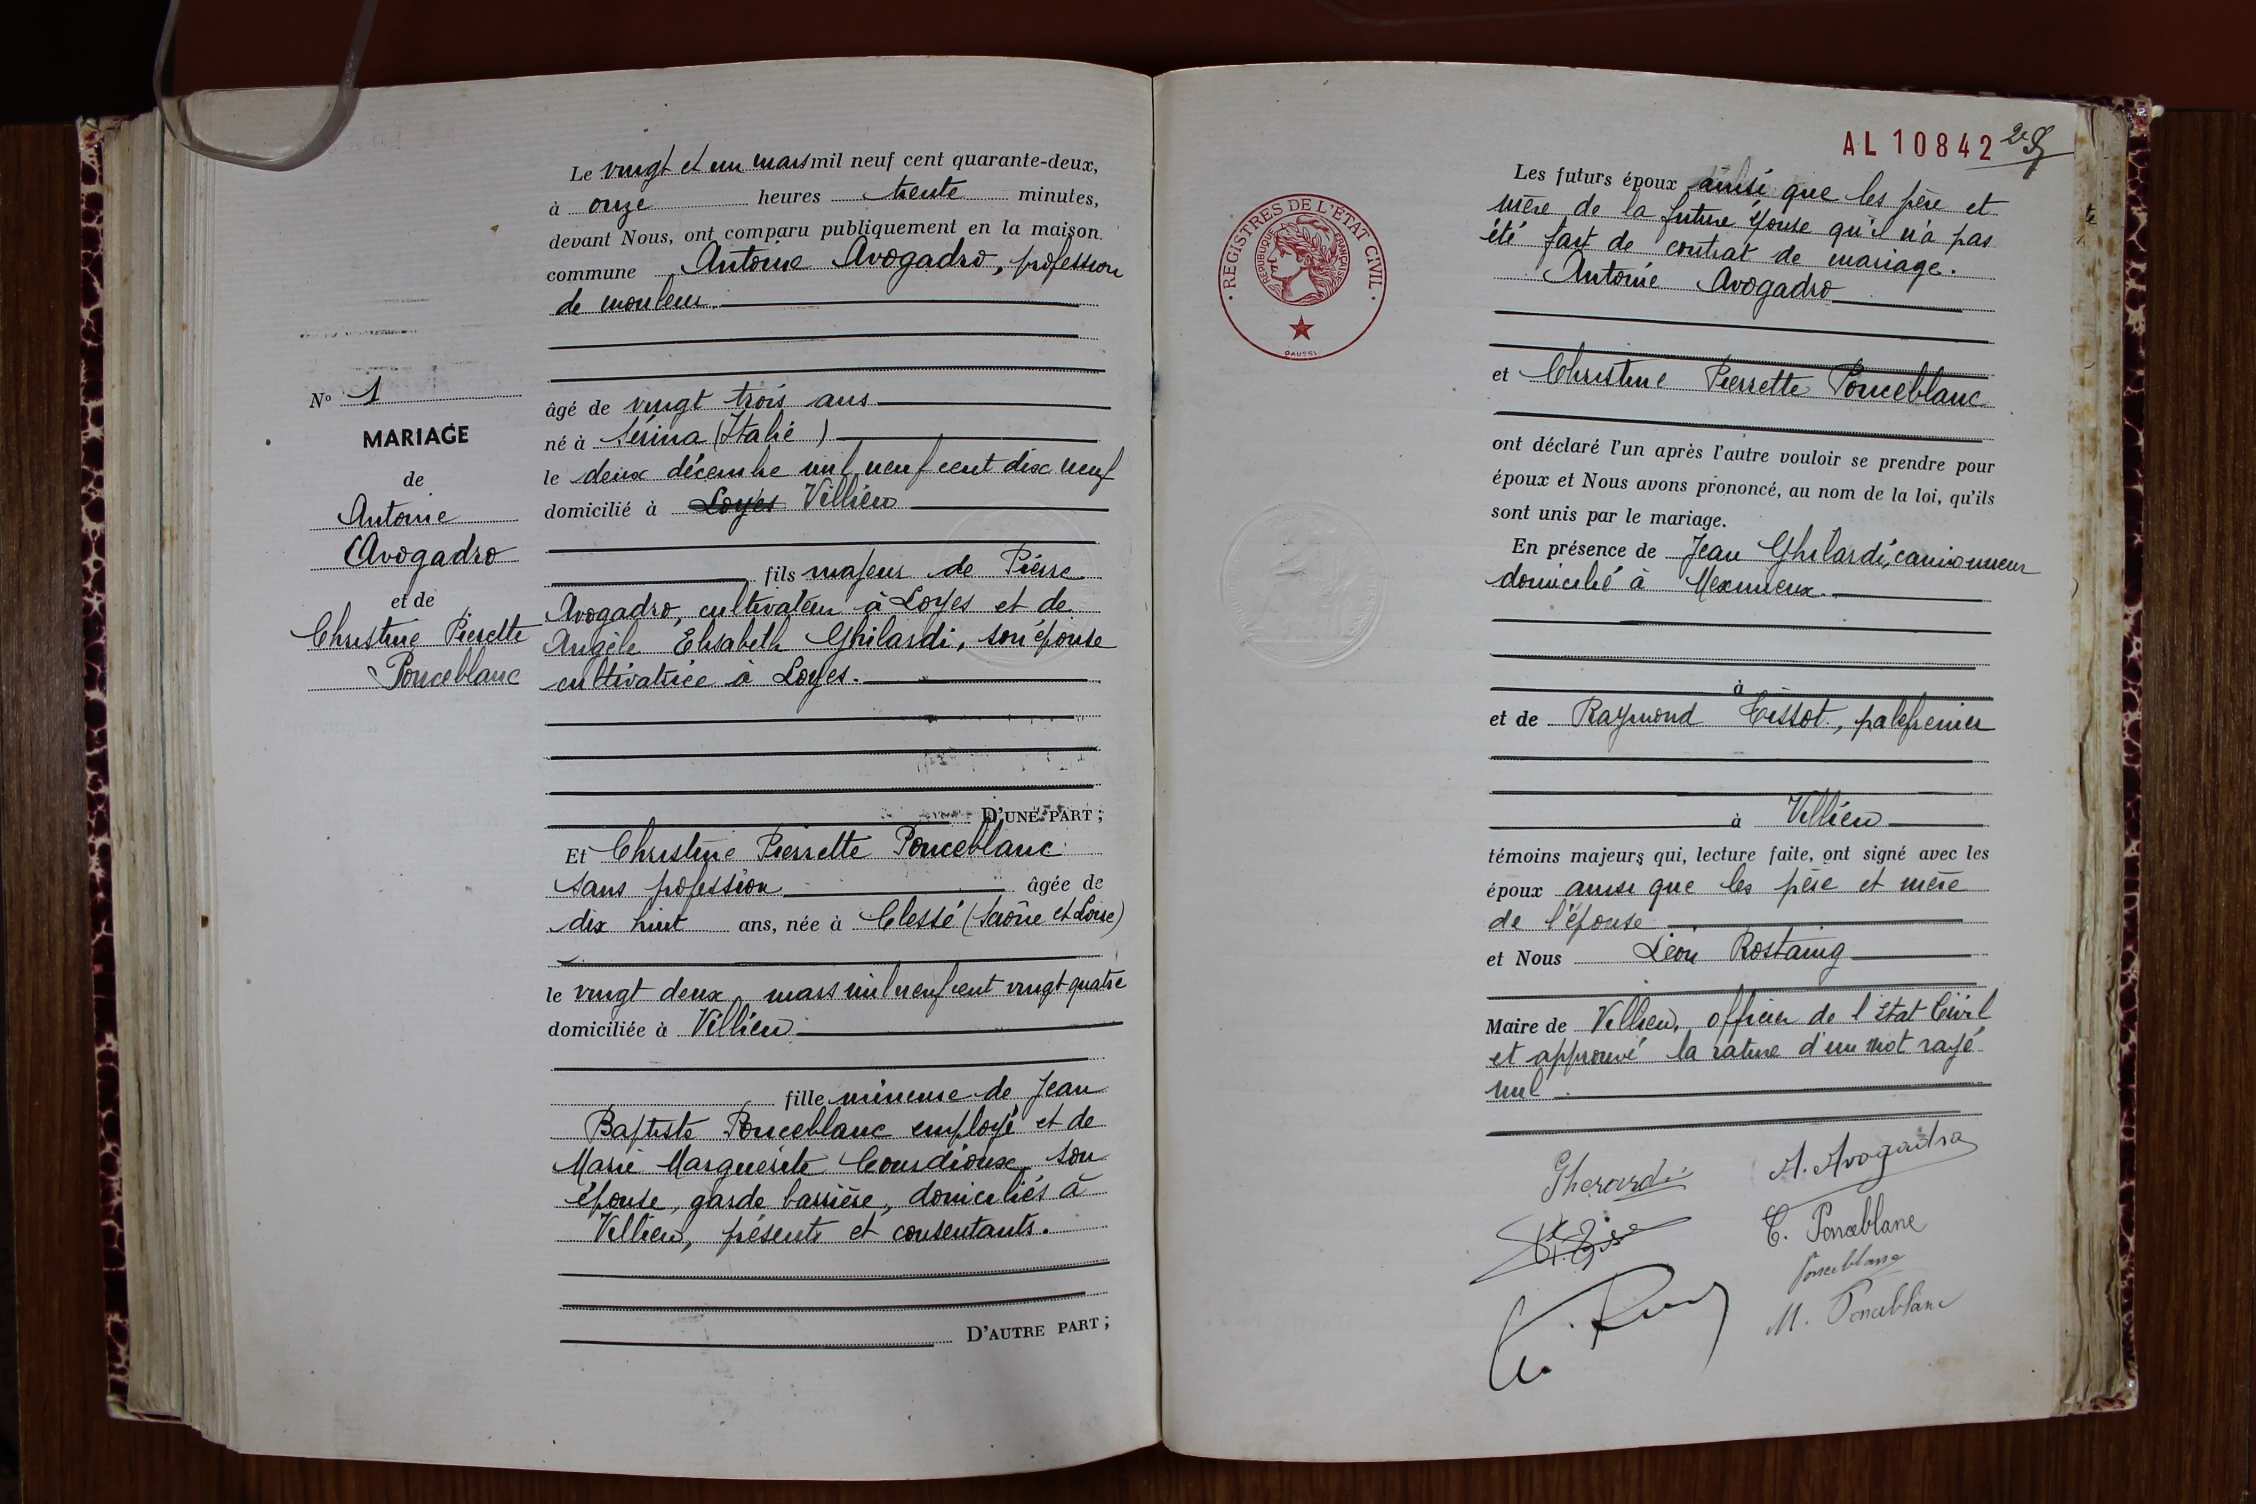 Le vingt et un mars mil neuf cent quarante-deux,
à onze heures trente minutes,
devant Nous, ont comparu publiquement en la maison
commune Antoine Avogadro, profession
de mouleur.
N° 1
MARIAGE
de
Antoine
Avogadro
et de
Christine Pierrette
Ponceblanc
âgé de vingt trois ans
né à Sérina (Italie)
le deux décembre mil neuf cent dix neuf
domicilié à Loyes Villieu
fils majeur de Pierre
Avogadro, cultivateur à Loyes et de
Angèle Elisabeth Ghilardi, son épouse
cultivatrice à Loyes.
D'UNE PART ;
Et Christine Pierrette Ponceblanc
sans profession âgée de
dix huit ans, née à Clessé (Saône et Loire)
le vingt deux mars mil neuf cent vingt quatre
domiciliée à Villieu
fille mineure de Jean
Baptiste Ponceblanc employé et de
Marie Marguerite Courdioux son
épouse, garde barrière, domiciliés à
Villieu, présents et consentants.
D'AUTRE PART ;
AL 10842
REGISTRES DE L'ÉTAT CIVIL
RÉPUBLIQUE FRANÇAISE
DAUSSI
Les futurs époux ainsi que les père et
mère de la future épouse qu'il n'a pas
été fait de contrat de mariage.
Antoine Avogadro
et Christine Pierrette Ponceblanc
ont déclaré l'un après l'autre vouloir se prendre pour
époux et Nous avons prononcé, au nom de la loi, qu'ils
sont unis par le mariage.
En présence de Jean Ghilardi, camionneur
domicilié à Meximieux.
à
et de Raymond Tissot, palefrenier
à Villieu
témoins majeurs qui, lecture faite, ont signé avec les
époux ainsi que les père et mère
de l'épouse
et Nous Léon Rostaing
Maire de Villieu, officier de l'Etat Civil
et approuvé la rature d'un mot rayé
nul
A. Avogadro
C. Ponceblanc
Ponceblanc
M. Ponceblanc